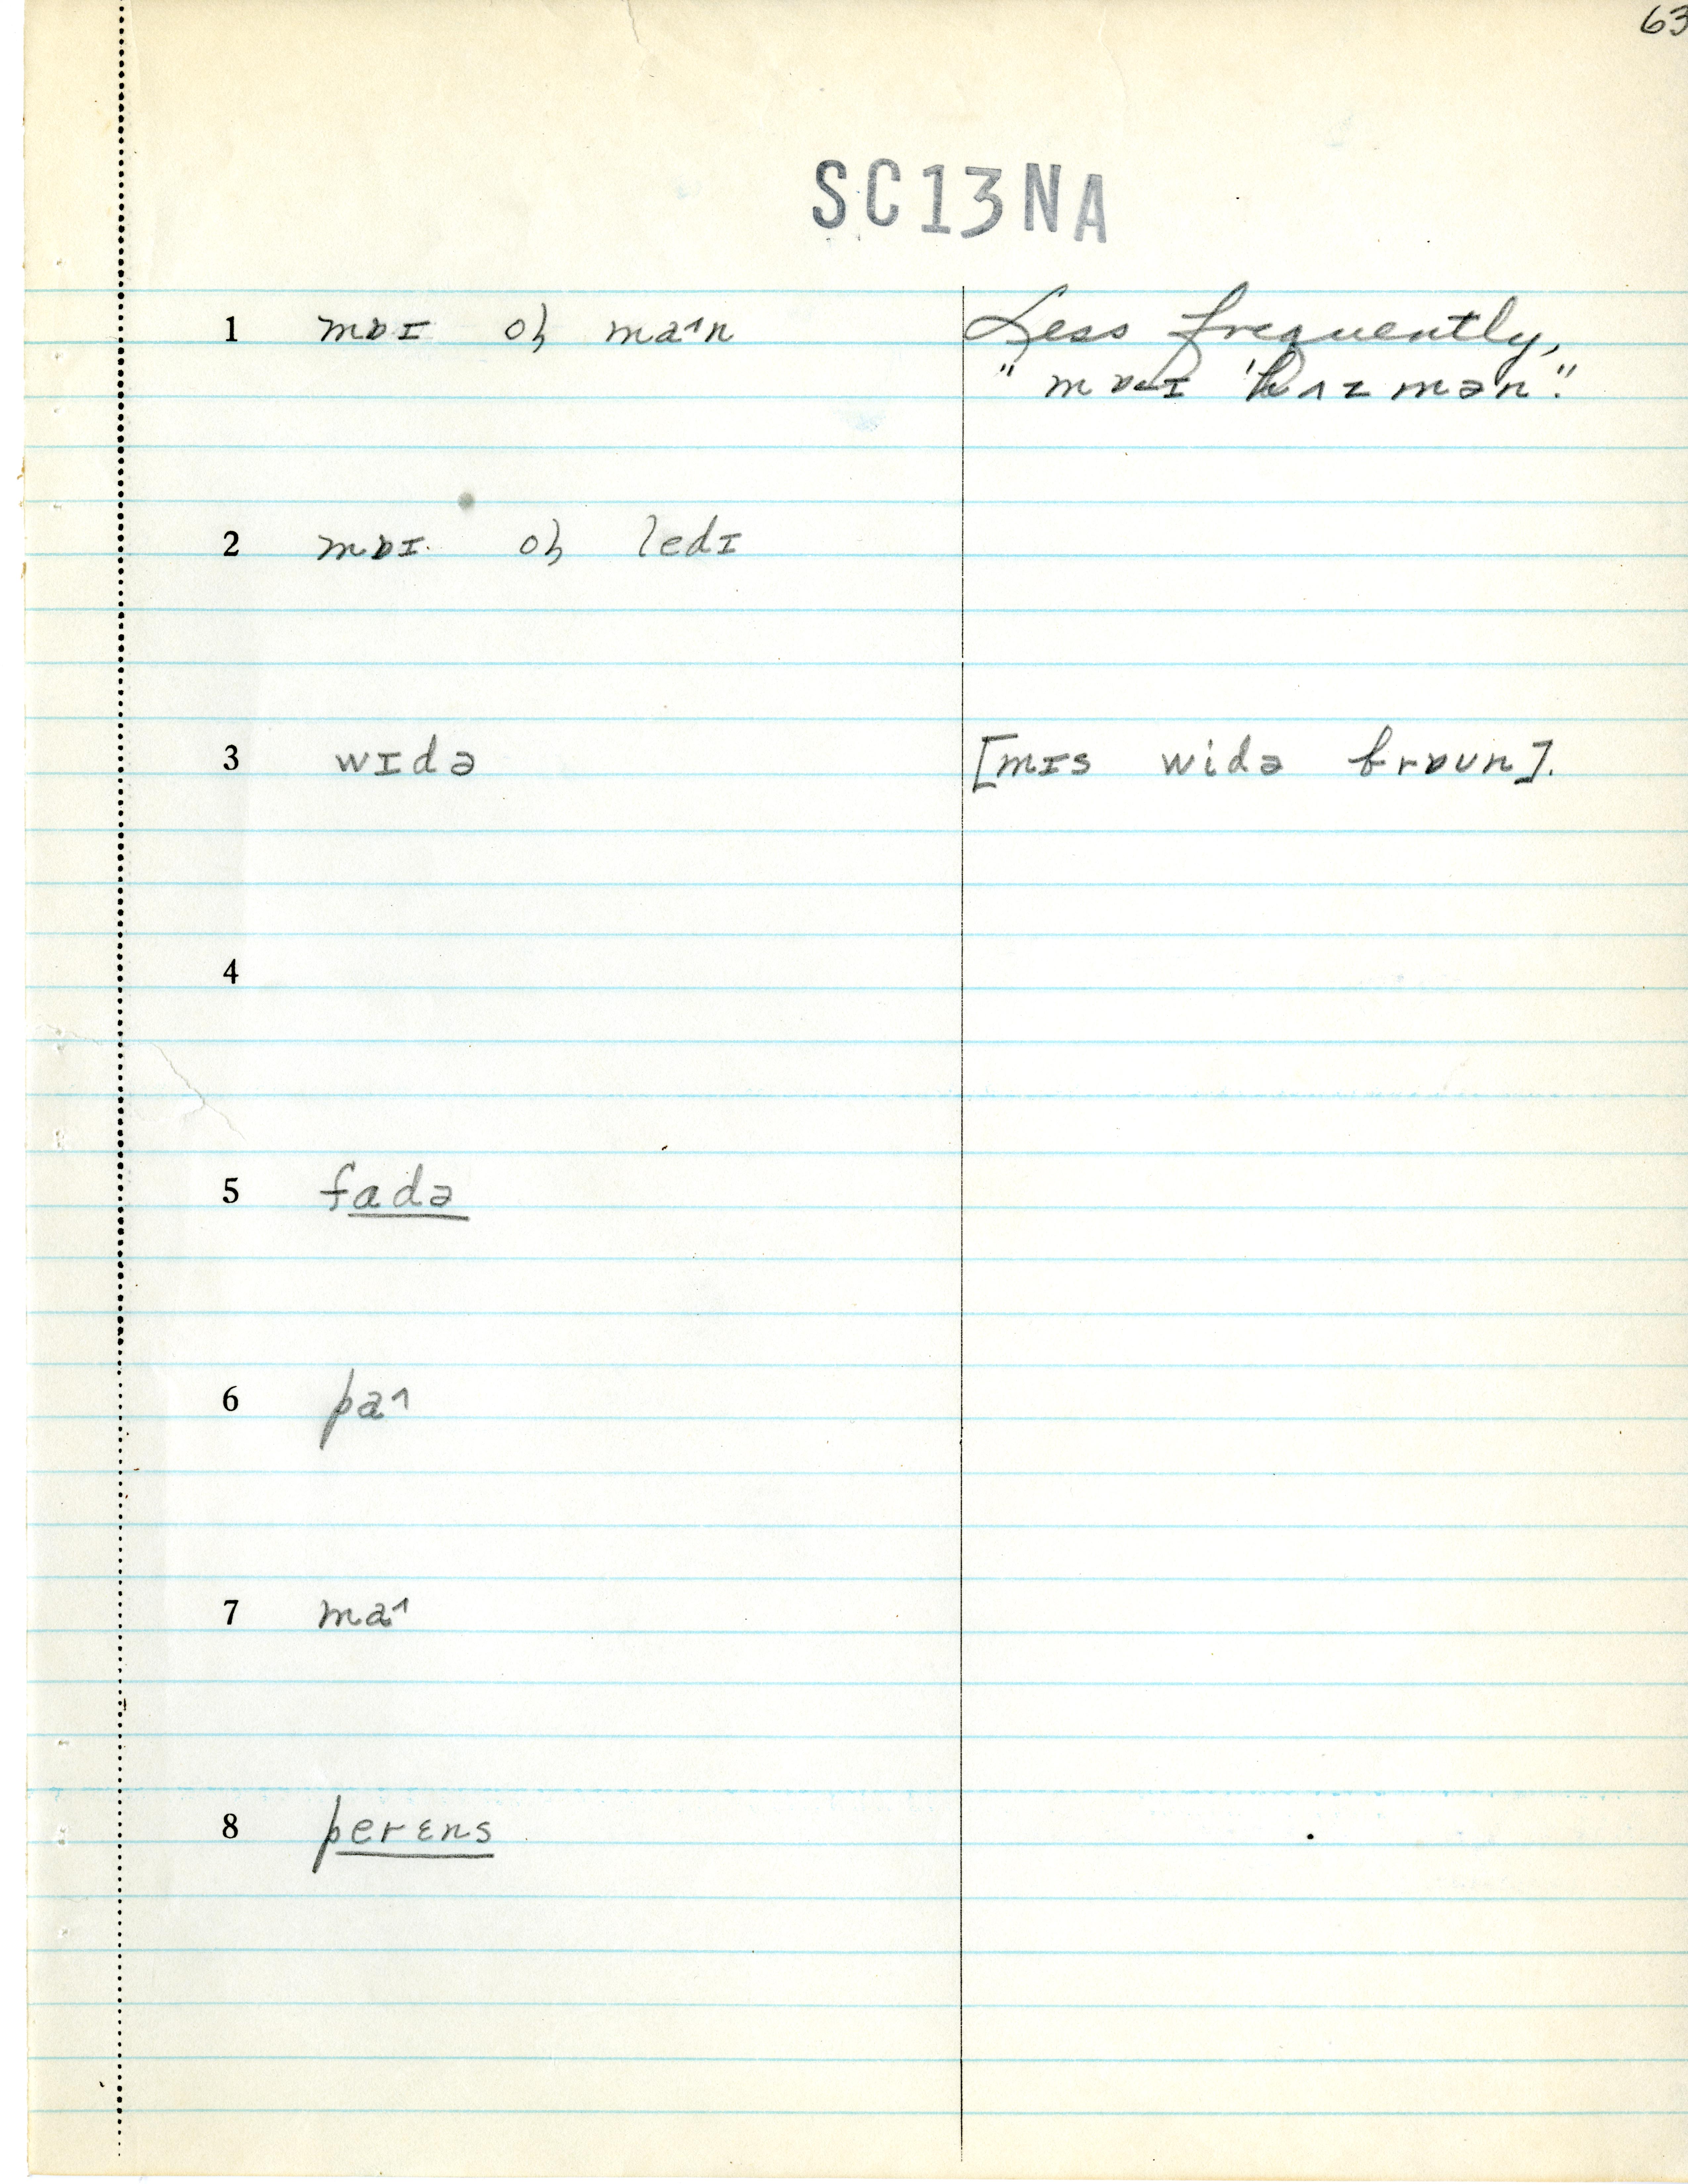 63
SC13NA
1 mɒɪ oɫ maˆn Less frequently,
"mɒɪ 'hʌzmən."
2 mɒɪ oɫ ledɪ
3 wɪdə [mɪs widə brɒun].
4
5 fadə
6 paˆ
7 maˆ
8 perɛns